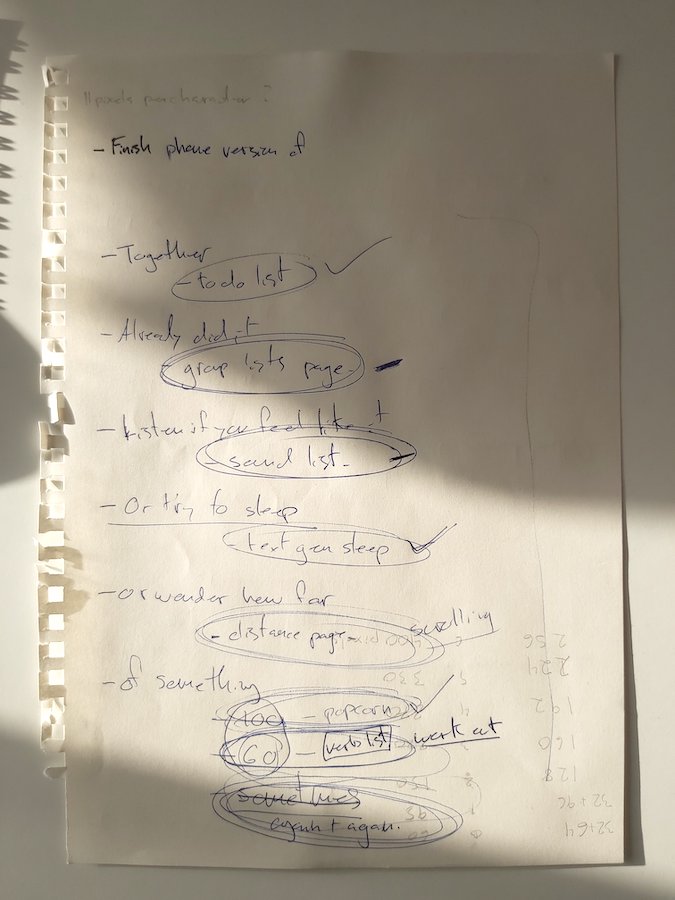 11 pixels per character ?
- Finish phone version of
- Together
- to do list
- Already did it
- group lists page -
- Listen if you feel like it
- sound list -
- Or try to sleep
- text gen sleep
- or wonder how far
- distance page - scrolling
- of something
- 100 - popcorn
- 60 - verbs list work out
again.
256
224
192
160
128
32+96
32+64